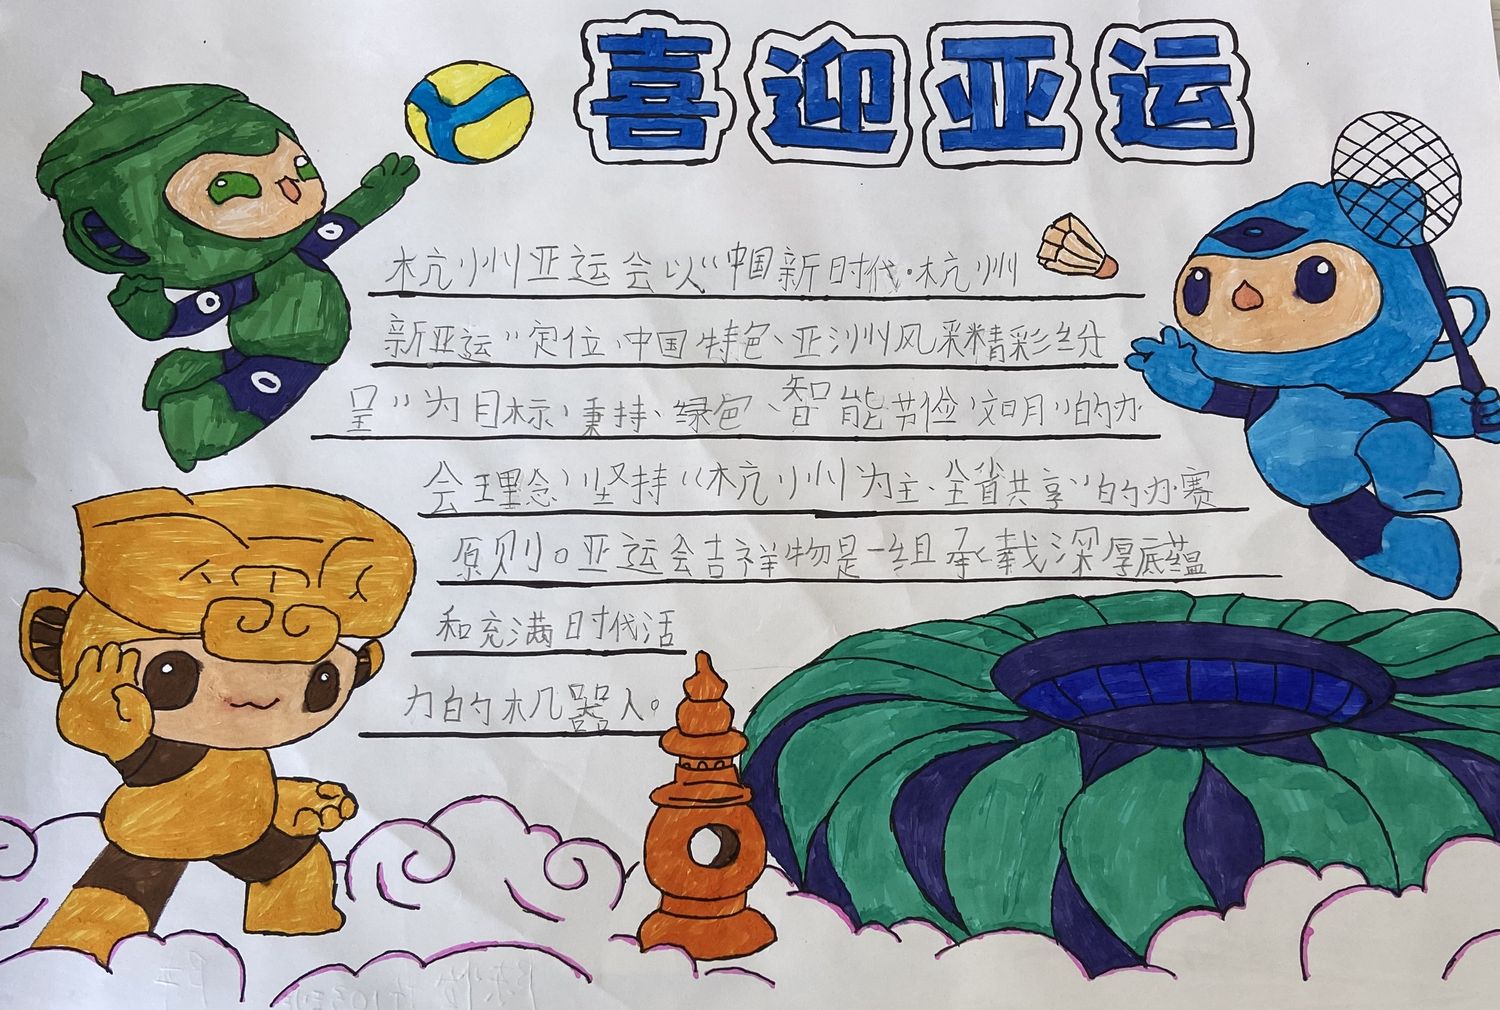 喜迎亚运
杭州亚运会以“中国新时代·杭州
新亚运”定位、中国特色、亚洲风采精彩纷
呈”为目标、秉持、绿色、智能节俭、文明”的办
会理念、坚持“杭州为主、全省共享”的办赛
原则。亚运会吉祥物是一组承载深厚底蕴
和充满时代活
力的机器人。